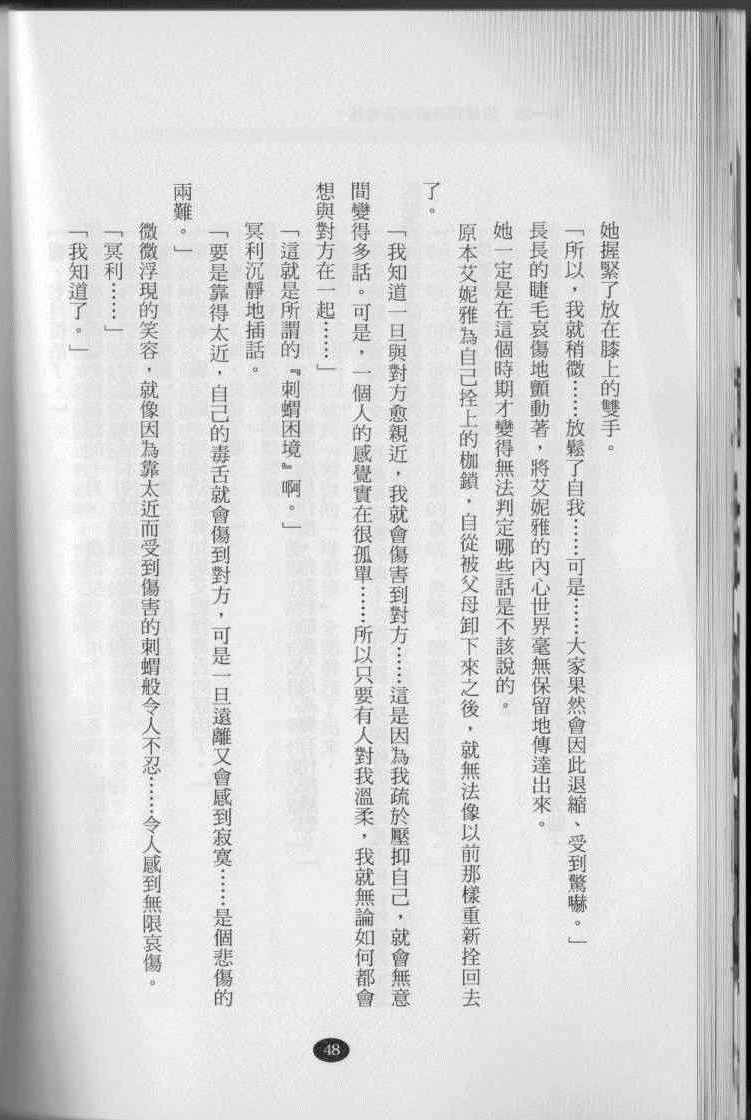 她握緊了放在膝上的雙手。
「所以，我就稍微……放鬆了自我……可是………大家果然會因此退縮、受到驚嚇。」
長長的睫毛哀傷地顫動著，將艾妮雅的內心世界毫無保留地傳達出來。
她一定是在這個時期才變得無法判定哪些話是不該說的。
原本艾妮雅為自己拴上的枷鎖，自從被父母卸下來之後，就無法像以前那樣重新拴回去
了。
「我知道一旦與對方愈親近，我就會傷害到對方……這是因為我疏於壓抑自己，就會無意
間變得多話。可是，一個人的感覺實在很孤單……所以只要有人對我溫柔，我就無論如何都會
想與對方在一起……」
「這就是所謂的『刺蝟困境』啊。」
冥利沉靜地插話。
「要是靠得太近，自己的毒舌就會傷到對方，可是一旦遠離又會感到寂寞……是個悲傷的
兩難。」
微微浮現的笑容，就像因為靠太近而受到傷害的刺蝟般令人不忍……令人感到無限哀傷。
「冥利……」
「我知道了。」
48